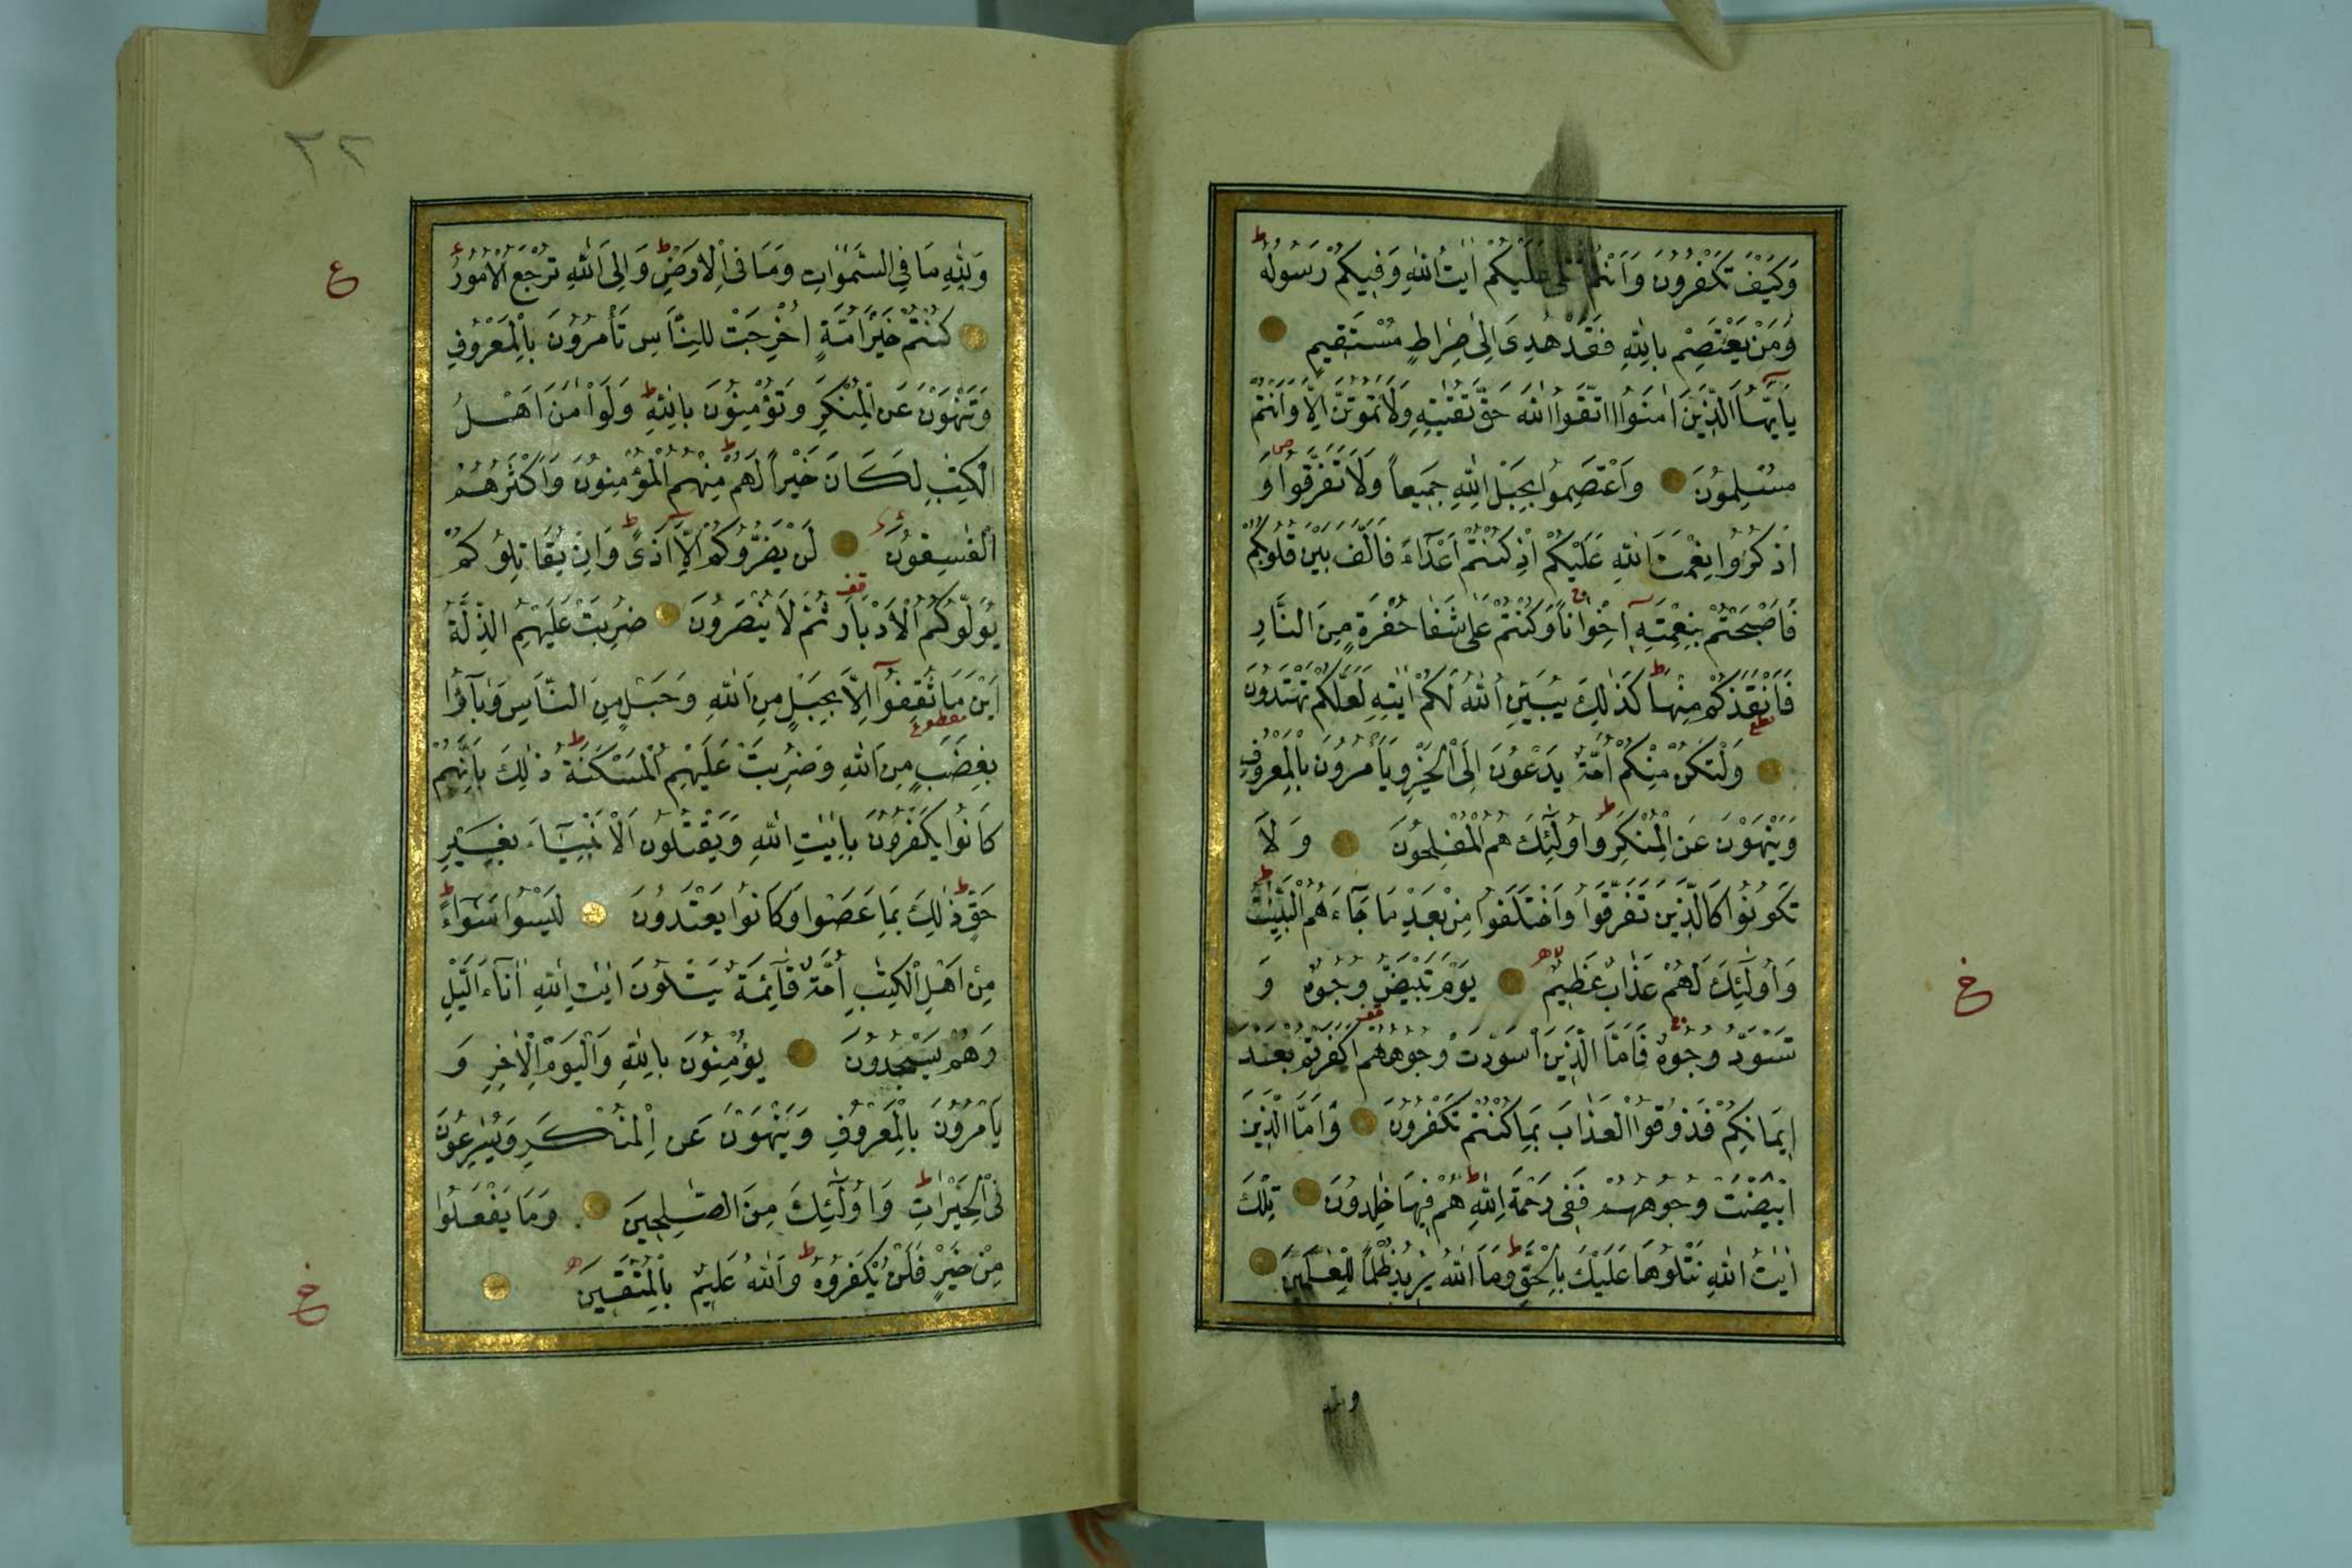 وَكَيْفَ تَكْفُرُونَ وَاَنْتُمْ تُتْلٰى عَلَيْكُمْ اٰيَاتُ اللّٰهِ وَفِيكُمْ رَسُولُهُ ط
وَمَنْ يَعْتَصِمْ بِاللّٰهِ فَقَدْ هُدِىَ اِلٰى صِرَاطٍ مُسْتَقِيمٍ
يَٓا اَيُّهَا الَّذِينَ اٰمَنُوا اتَّقُوا اللّٰهَ حَقَّ تُقٰيتِهِ وَلَا تَمُوتُنَّ اِلَّا وَاَنْتُمْ
مُسْلِمُونَ وَاعْتَصِمُوا بِحَبْلِ اللّٰهِ جَمِيعاً وَلَا تَفَرَّقُوا ص وَ
اذْكُرُوا نِعْمَتَ اللّٰهِ عَلَيْكُمْ اِذْ كُنْتُمْ اَعْدَٓاءً فَاَلَّفَ بَيْنَ قُلُوبِكُمْ
فَاَصْبَحْتُمْ بِنِعْمَتِهِٓ اِخْوَاناً وَكُنْتُمْ عَلٰى شَفَا حُفْرَةٍ مِنَ النَّارِ
فَاَنْقَذَكُمْ مِنْهَا ط كَذٰلِكَ يُبَيِّنُ اللّٰهُ لَكُمْ اٰيٰتِهِ لَعَلَّكُمْ تَهْتَدُونَ
وَلْتَكُنْ مِنْكُمْ اُمَّةٌ يَدْعُونَ اِلَى الْخَيْرِ وَيَأْمُرُونَ بِالْمَعْرُوفِ
وَيَنْهَوْنَ عَنِ الْمُنْكَرِ ط وَاُولٰٓئِكَ هُمُ الْمُفْلِحُونَ وَلَا
تَكُونُوا كَالَّذِينَ تَفَرَّقُوا وَاخْتَلَفُوا مِنْ بَعْدِ مَا جَٓاءَهُمُ الْبَيِّنٰتُ ط
وَاُولٰٓئِكَ لَهُمْ عَذَابٌ عَظِيمٌ يَوْمَ تَبْيَضُّ وُجُوهٌ وَ
تَسْوَدُّ وُجُوهٌ فَاَمَّا الَّذِينَ اسْوَدَّتْ وُجُوهُهُمْ اَكَفَرْتُمْ بَعْدَ
اِيمَانِكُمْ فَذُوقُوا الْعَذَابَ بِمَا كُنْتُمْ تَكْفُرُونَ وَاَمَّا الَّذِينَ
ابْيَضَّتْ وُجُوهُهُمْ فَفِى رَحْمَةِ اللّٰهِ ط هُمْ فِيهَا خٰلِدُونَ تِلْكَ
اٰيٰتُ اللّٰهِ نَتْلُوهَا عَلَيْكَ بِالْحَقِّ ط وَمَا اللّٰهُ يُرِيدُ ظُلْماً لِلْعٰلَمِينَ
ولله
خ
٢٢
ع
وَلِلّٰهِ مَا فِي السَّمٰوَاتِ وَمَا فِى الْاَرْضِ ط وَاِلَى اللّٰهِ تُرْجَعُ الْاُمُورُ ع
كُنْتُمْ خَيْرَ اُمَّةٍ اُخْرِجَتْ لِلنَّاسِ تَأْمُرُونَ بِالْمَعْرُوفِ
وَتَنْهَوْنَ عَنِ الْمُنْكَرِ وَتُؤْمِنُونَ بِاللّٰهِ ط وَلَوْ اٰمَنَ اَهْلُ
الْكِتٰبِ لَكَانَ خَيْراً لَهُمْ ط مِنْهُمُ الْمُؤْمِنُونَ وَاَكْثَرُهُمُ
الْفٰسِقُونَ لَنْ يَضُرُّوكُمْ اِلَّٓا اَذًى ط وَاِنْ يُقَاتِلُوكُمْ
يُوَلُّوكُمُ الْاَدْبَارَ قف ثُمَّ لَا يُنْصَرُونَ ضُرِبَتْ عَلَيْهِمُ الذِّلَّةُ
اَيْنَ مَا ثُقِفُٓوا اِلَّا بِحَبْلٍ مِنَ اللّٰهِ وَحَبْلٍ مِنَ النَّاسِ وَبَٓاؤُا
بِغَضَبٍ مِنَ اللّٰهِ وَضُرِبَتْ عَلَيْهِمُ الْمَسْكَنَةُ ط ذٰلِكَ بِاَنَّهُمْ
كَانُوا يَكْفُرُونَ بِاٰيٰتِ اللّٰهِ وَيَقْتُلُونَ الْاَنْبِيَٓاءَ بِغَيْرِ
حَقٍّ ط ذٰلِكَ بِمَا عَصَوْا وَكَانُوا يَعْتَدُونَ لَيْسُوا سَوَٓاءً ط
مِنْ اَهْلِ الْكِتٰبِ اُمَّةٌ قَٓائِمَةٌ يَتْلُونَ اٰيٰتِ اللّٰهِ اٰنَٓاءَ الَّيْلِ
وَهُمْ يَسْجُدُونَ يُؤْمِنُونَ بِاللّٰهِ وَالْيَوْمِ الْاٰخِرِ وَ
يَأْمُرُونَ بِالْمَعْرُوفِ وَيَنْهَوْنَ عَنِ الْمُنْكَرِ وَيُسٰرِعُونَ
فِى الْخَيْرَاتِ ط وَاُولٰٓئِكَ مِنَ الصّٰلِحِينَ وَمَا يَفْعَلُوا
مِنْ خَيْرٍ فَلَنْ يُكْفَرُوهُ ط وَاللّٰهُ عَلِيمٌ بِالْمُتَّقِينَ
خ